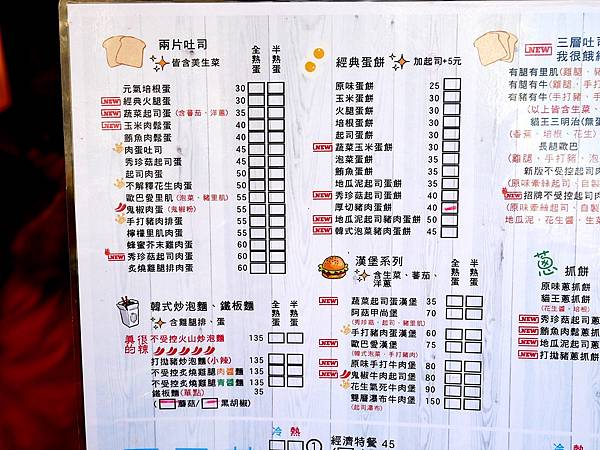 兩片吐司
皆含美生菜
全熟蛋
半熟蛋
元氣培根蛋 30
NEW 經典火腿蛋 30
NEW 蔬菜起司蛋(含番茄、洋蔥) 35
NEW 玉米肉鬆蛋 40
鮪魚肉鬆蛋 40
肉蛋吐司 45
秀珍菇起司蛋 45
起司肉蛋 50
不解釋花生肉蛋 50
歐巴愛里肌(泡菜、豬里肌) 55
鬼椒肉蛋(鬼椒粉) 55
手打豬肉排蛋 55
檸檬里肌肉蛋 55
蜂蜜芥末雞肉蛋 60
NEW 秀珍菇起司肉蛋 60
炙燒雞腿排肉蛋 60
韓式炒泡麵、鐵板麵
含雞腿排、蛋
全熟蛋
半熟蛋
真的很辣
不受控火山炒泡麵 135
打拋豬炒泡麵(小辣) 135
不受控炙燒雞腿肉醬麵 135
不受控炙燒雞腿青醬麵 135
鐵板麵(單點) 35
(蘑菇/黑胡椒)
經典蛋餅
加起司+5元
原味蛋餅 25
玉米蛋餅 30
火腿蛋餅 30
培根蛋餅 30
起司蛋餅 30
NEW 蔬菜玉米蛋餅 30
泡菜蛋餅 35
鮪魚蛋餅 35
地瓜泥起司蛋餅 35
NEW 秀珍菇起司蛋餅 40
厚切豬肉蛋餅 40
NEW 地瓜泥起司豬肉蛋餅 50
NEW 韓式泡菜豬肉蛋餅 45
漢堡系列
含生菜、蕃茄、洋蔥
全熟蛋
半熟蛋
NEW 蔬菜起司蛋漢堡 35
阿菇甲尚堡 70
(秀珍菇、起司、豬里肌)
手打豬肉蛋漢堡 60
NEW 歐巴愛漢堡 75
(韓式泡菜、手打豬肉)
NEW 原味手打牛肉堡 80
NEW 鬼椒牛肉起司堡 80
花生氣死牛肉堡 90
雙層瀑布牛肉堡 150
(起司瀑布)
冷 熱
① 經濟特餐 45
NEW 三層吐司
我很餓
有腿有里肌(雞腿、豬
有腿有牛(雞腿、手打
有豬有牛(手打豬、手
(以上皆含生菜、
貓王三明治(無蛋
(香蕉、培根、花生)
長腿歐巴
(雞腿、手打豬、泡
新版不受控起司肉
(原味素絲起司、自製
NEW 招牌不受控起司肉
(原味素絲起司、自製
地瓜泥、花生醬、生菜
蔥 抓餅
原味蔥抓餅
貓王蔥抓餅
(花生醬、培根)
NEW 秀珍菇起司蔥
NEW 鮪魚肉鬆蔥抓餅
NEW 地瓜泥起司蔥
NEW 打拋豬蔥抓餅
冷